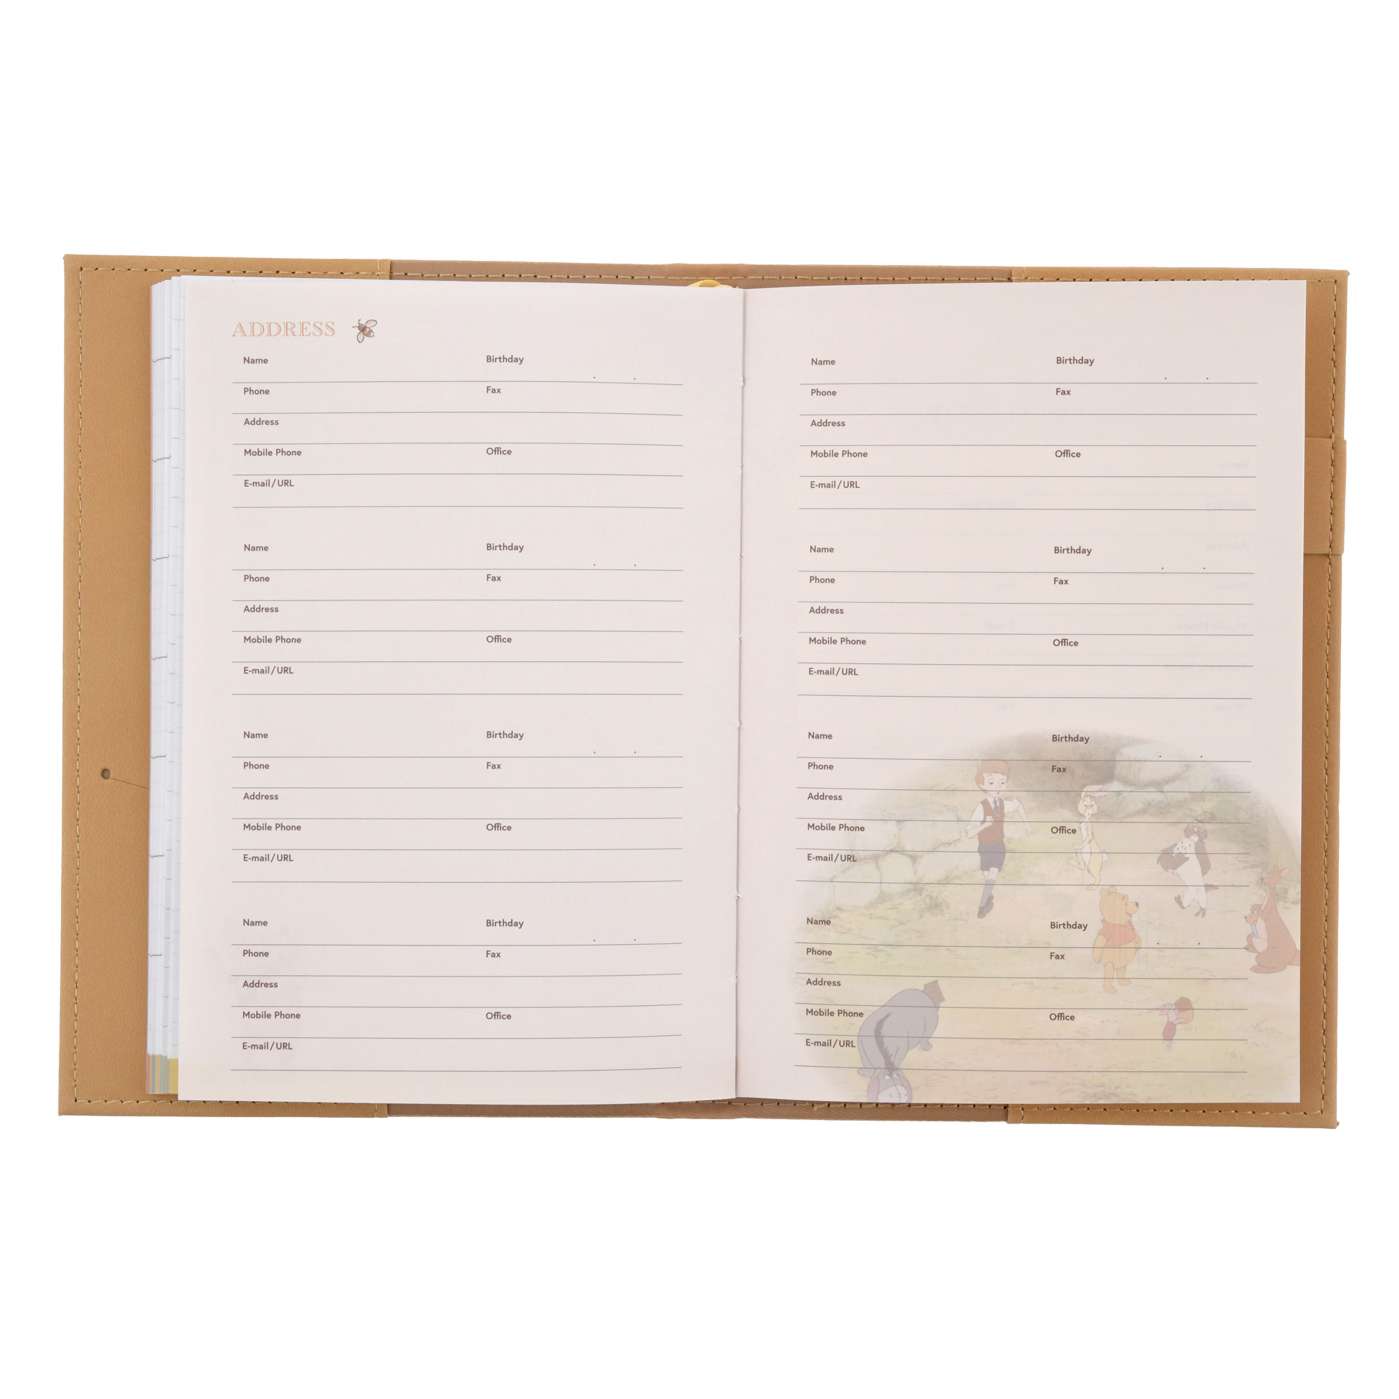 ADDRESS
Name Birthday
. .
Phone Fax
Address
Mobile Phone Office
E-mail/URL
Name Birthday
. .
Phone Fax
Address
Mobile Phone Office
E-mail/URL
Name Birthday
. .
Phone Fax
Address
Mobile Phone Office
E-mail/URL
Name Birthday
. .
Phone Fax
Address
Mobile Phone Office
E-mail/URL
Name Birthday
. .
Phone Fax
Address
Mobile Phone Office
E-mail/URL
Name Birthday
. .
Phone Fax
Address
Mobile Phone Office
E-mail/URL
Name Birthday
. .
Phone Fax
Address
Mobile Phone Office
E-mail/URL
Name Birthday
. .
Phone Fax
Address
Mobile Phone Office
E-mail/URL